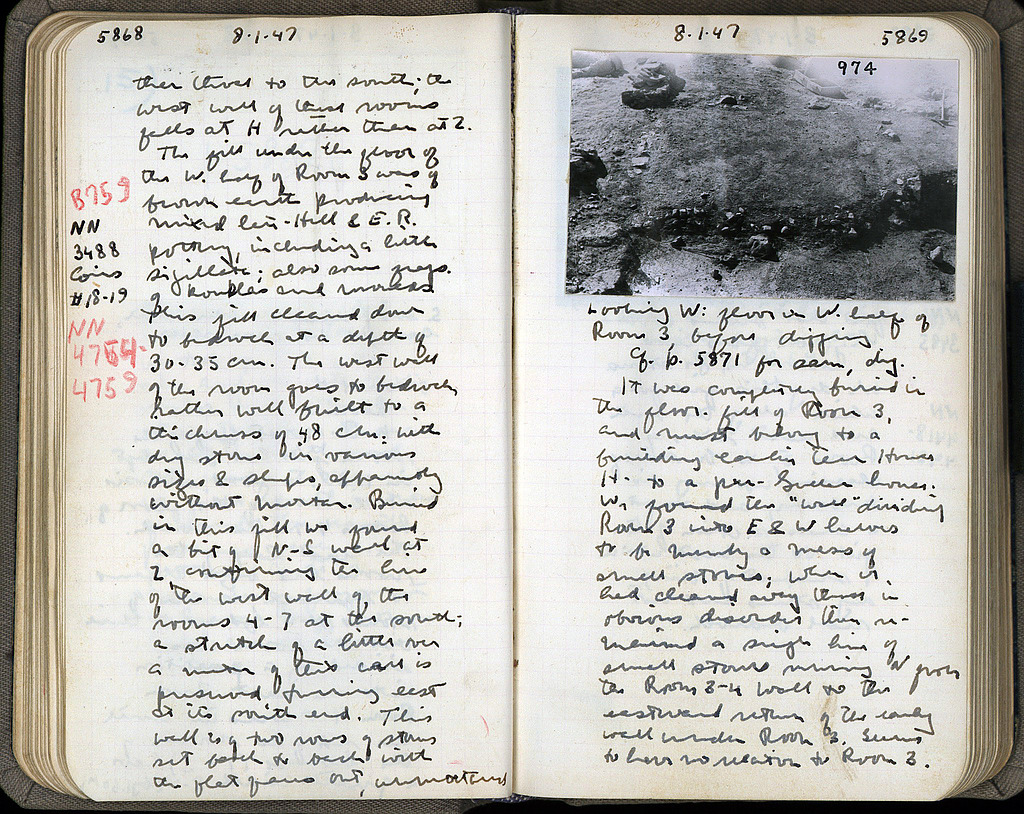 5868
8·1·47
than those to the south; the
west wall of these rooms
falls at H rather than at Z.
The fill under the floor of
the W. half of Room 3 was of
brown earth producing
mixed late-Hell & E.R.
pottery, including a little
sigillata; also some frags.
of
and moulds
This fill cleaned down
to bedrock at a depth of
30-35 cm. The west wall
of the room goes to bedrock,
rather well built to a
thickness of 48 cm. with
dry stone in various
sizes & shapes, apparently
without mortar. Buried
in this fill we found
a bit of N-S wall at
Z continuing the line
of the west wall of the
rooms 4-7 at the south;
a stretch of a little over
a meter of this wall is
preserved turning east
at its south end. This
wall is of two rows of stones
set back to back with
the flat faces out, unmortared
B759
NN
3488
Coins
#18-19
NN
4754-
4759
8·1·47
5869
974
Looking W: floor in W. half of
Room 3, before digging.
Cf. p. 5871 for same, dug.
It was completely buried in
the floor-fill of Room 3,
and must belong to a
building earlier than House
H- to a pre- house.
We found the "wall" dividing
Room 3 into E & W halves
to be merely a mess of
small stones; when we
had cleared away those in
obvious disorder there re-
mained a single line of
small stones running N from
the Room 3-4 wall to the
eastward return of the early
wall under Room 3. Seems
to have no relation to Room 3.